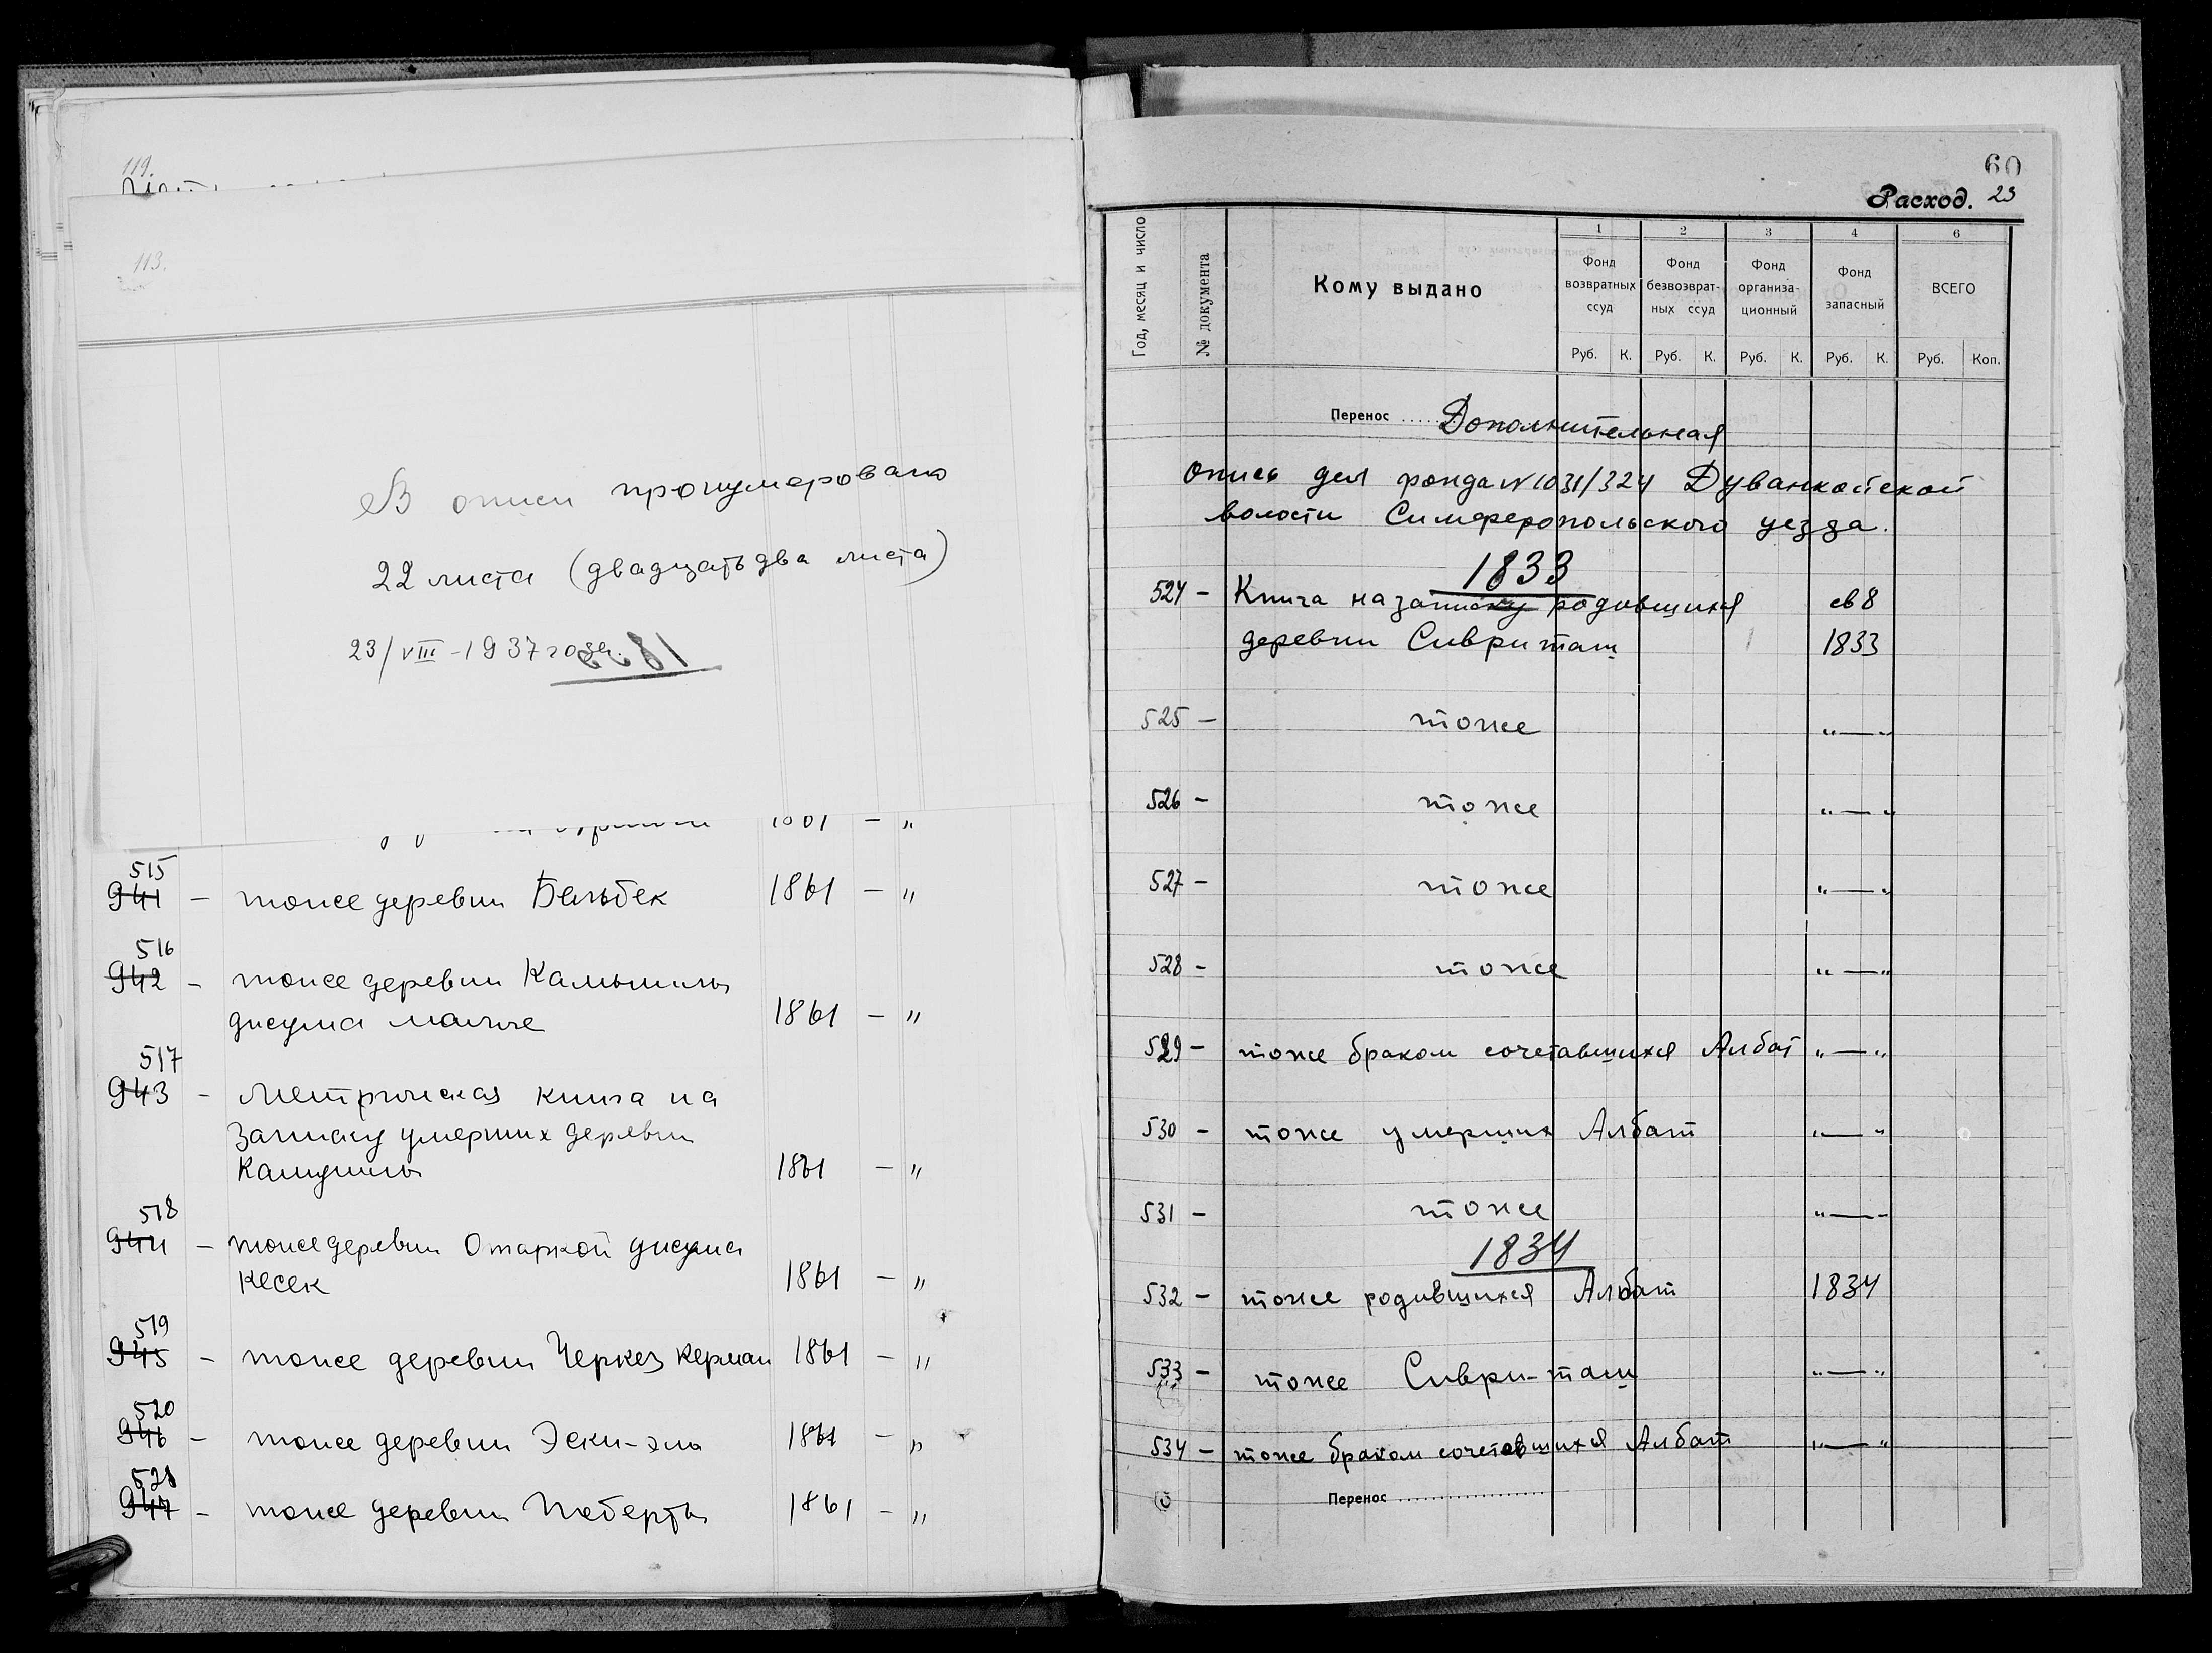 119.
113.
В описи пронумеровано
22 листа (двадцать два листа)
23/VIII-1937 года.
515
941 - тоже деревни Бельбек 1861 - "
516
942 - тоже деревни Камышлы
джума маале 1861 - "
517
943 - Метрическая книга на
записку умерших деревни
Камышлы 1861 - "
518
944 - тоже деревни Отаркой джума
кесек 1861 - "
519
945 - тоже деревни Черкез Керман 1861 - "
520
946 - тоже деревни Эски-эли 1861 - "
521
947 - тоже деревни 1861 - "
60
Расход. 23
Год, месяц и число
№ документа
Кому выдано
1 2 3 4 6
Фонд возвратных ссуд
Фонд безвозврат-ных ссуд
Фонд организа-ционный
Фонд запасный
ВСЕГО
Руб. К. Руб. К. Руб. К. Руб. К. Руб. Коп.
Перенос ..... Дополнительная
опись дел фонда N 1031/324 Дуванкойской
волости Симферопольского уезда.
1833
524 - Книга на записку родившихся ев 8
деревни Сивриташ 1833
525 - тоже "—"
526 - тоже "—"
527 - тоже "—"
528 - тоже "—"
529 - тоже браком сочетавшихся Албат "—"
530 - тоже умерших Албат "—"
531 - тоже "—"
1834
532 - тоже родившихся Албат 1834
533 - тоже Сиври-таш "—"
534 - тоже браком сочетавшихся Албат "—"
Перенос ..................